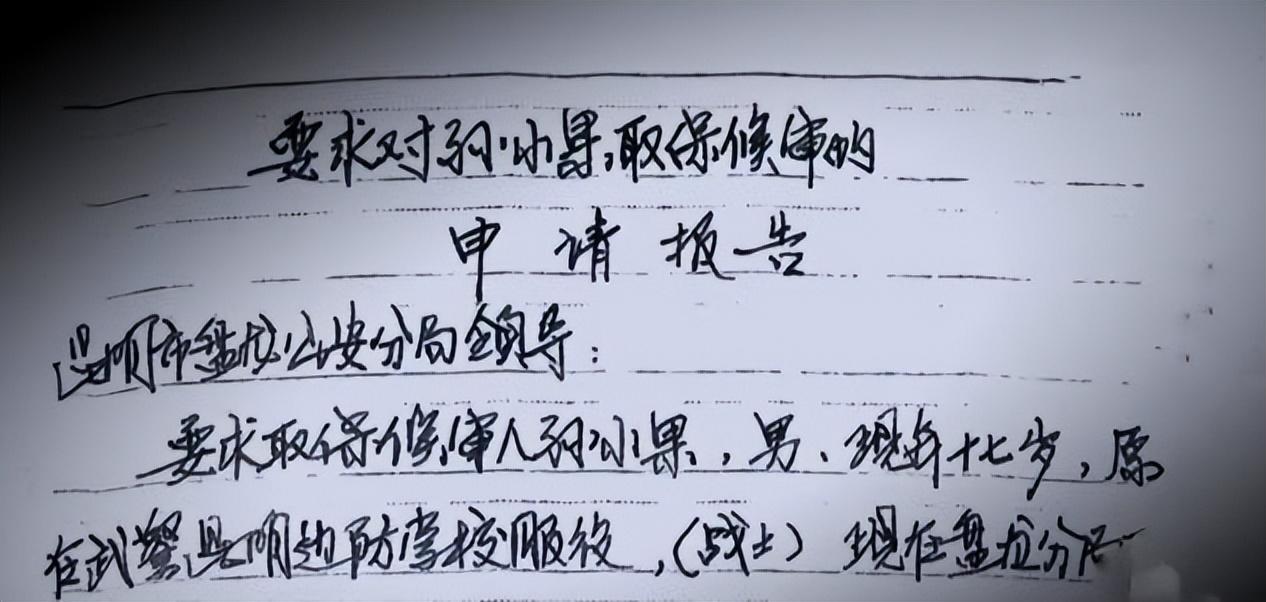 要求对孙小果取保候审的
申请报告
昆明市盘龙公安分局领导：
要求取保候审人孙小果，男、现年十七岁，原
在武警昆明边防学校服役，（战士）现在盘龙分